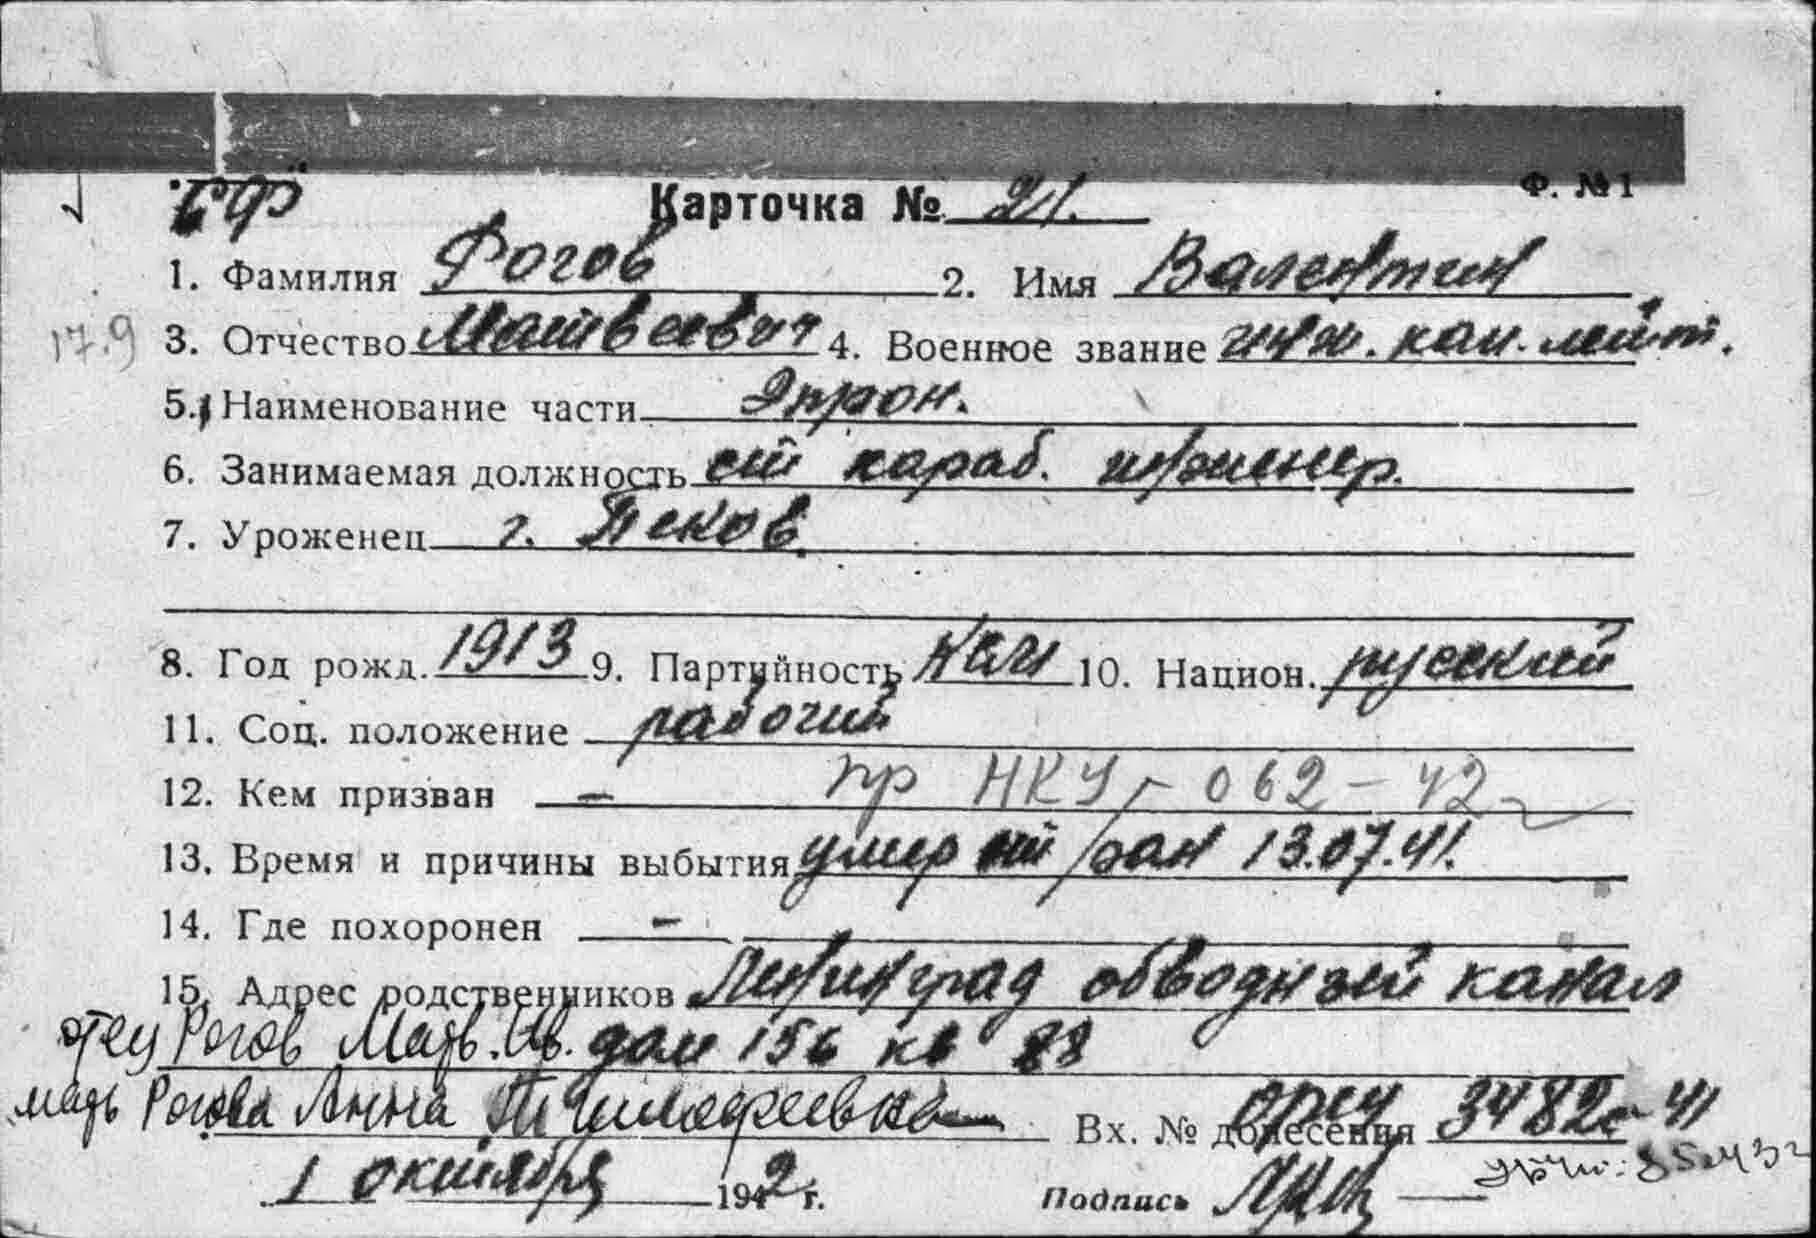 "СФ"
Ф. №1
Карточка № 21.
1. Фамилия Рогов 2. Имя Валентин
17.9
3. Отчество Матвеевич 4. Военное звание инж. кап. лейт.
5. Наименование части Эпрон.
6. Занимаемая должность ст караб. инженер.
7. Уроженец г. Псков
8. Год рожд. 1913 9. Партийность 10. Национ. русский
11. Соц. положение рабочий
12. Кем призван – пр НКУ-062-42
13. Время и причины выбытия умер от ран 13.07.41.
14. Где похоронен –
15. Адрес родственников Ленинград обводный канал
отец Рогов Матв. Ив. дом 156 кв 88
мать Рогова Анна Тимофеевна Вх. № донесения 3482с-41
1 октября 1942 г. Подпись